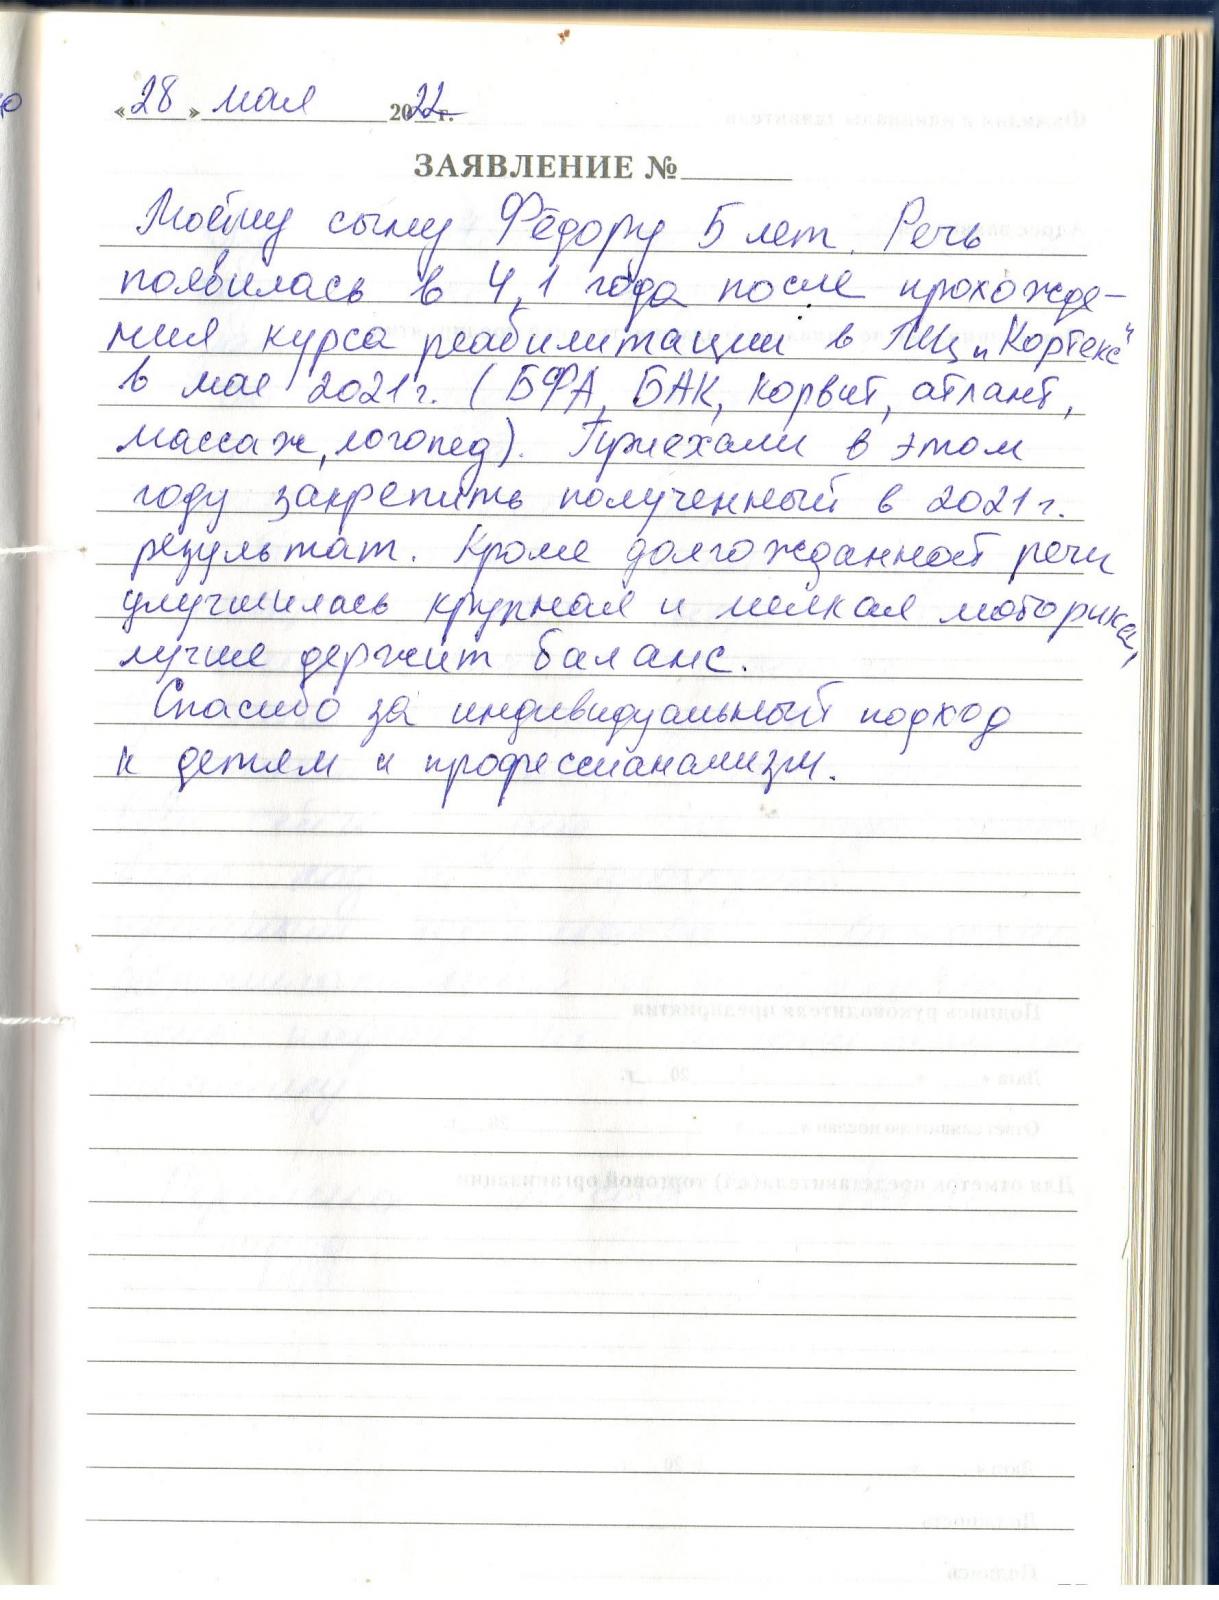 «28» мая 2022 г.
ЗАЯВЛЕНИЕ №
Моему сыну Фёдору 5 лет. Речь
появилась в 4,1 года после прохожде-
ния курса реабилитации в ЛЦ „Кортекс"
в мае 2021 г. (БФА, БАК, корвит, атлант,
массаж, логопед). Приехали в этом
году закрепить полученный в 2021 г.
результат. Кроме долгожданной речи
улучшилась крупная и мелкая моторика,
лучше держит баланс.
Спасибо за индивидуальный подход
к детям и профессианализм.